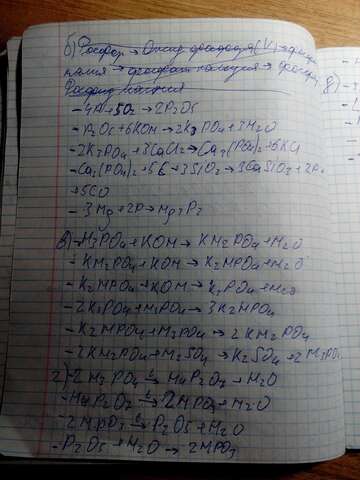 б) Фосфор → Оксид фосфора (V) → фосфат
калия → фосфат кальция → фосфор
Фосфид магния
- 4P + 5O2 → 2P2O5
- P2O5 + 6KOH → 2K3PO4 + 3H2O
- 2K3PO4 + 3CaCl2 → Ca3(PO4)2 + 6KCl
- Ca3(PO4)2 + 5C + 3SiO2 → 3CaSiO3 + 2P +
+ 5CO
- 3Mg + 2P → Mg3P2
в) - H3PO4 + KOH → KH2PO4 + H2O
- KH2PO4 + KOH → K2HPO4 + H2O
- K2HPO4 + KOH → K3PO4 + H2O
- 2K3PO4 + H3PO4 → 3K2HPO4
- K2HPO4 + H3PO4 → 2KH2PO4
- 2KH2PO4 + H2SO4 → K2SO4 + 2H3PO4
г) - 2H3PO4 t→ H4P2O7 + H2O
- H4P2O7 t→ 2HPO3 + H2O
- 2HPO3 t→ P2O5 + H2O
- P2O5 + H2O → 2HPO3